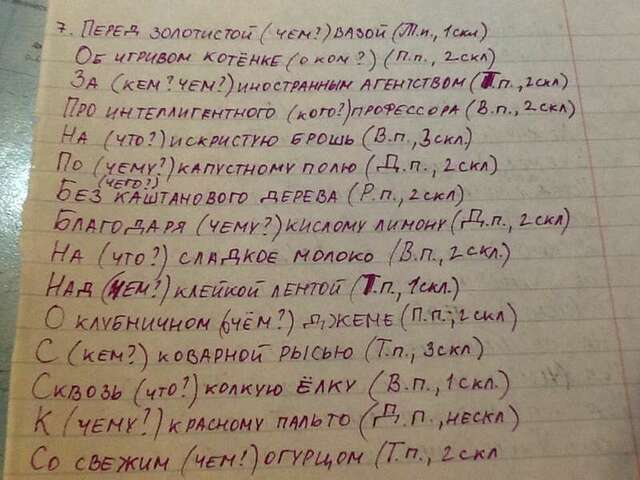 7. Перед золотистой (чем?) вазой (Т.п., 1скл)
Об игривом котёнке (о ком?) (П.п., 2скл)
За (кем? чем?) иностранным агентством (Т.п., 2скл)
Про интеллигентного (кого?) профессора (В.п., 2скл)
На (что?) искристую брошь (В.п., 3скл)
По (чему?) капустному полю (Д.п., 2скл)
(чего?)
Без каштанового дерева (Р.п., 2скл)
Благодаря (чему?) кислому лимону (Д.п., 2скл)
На (что?) сладкое молоко (В.п., 2скл.)
Над (чем?) клейкой лентой (Т.п., 1скл.)
О клубничном (чём?) джеме (П.п., 2скл)
С (кем?) коварной рысью (Т.п., 3скл)
Сквозь (что?) колкую ёлку (В.п., 1скл.)
К (чему?) красному пальто (Д.п., нескл)
Со свежим (чем?) огурцом (Т.п., 2скл